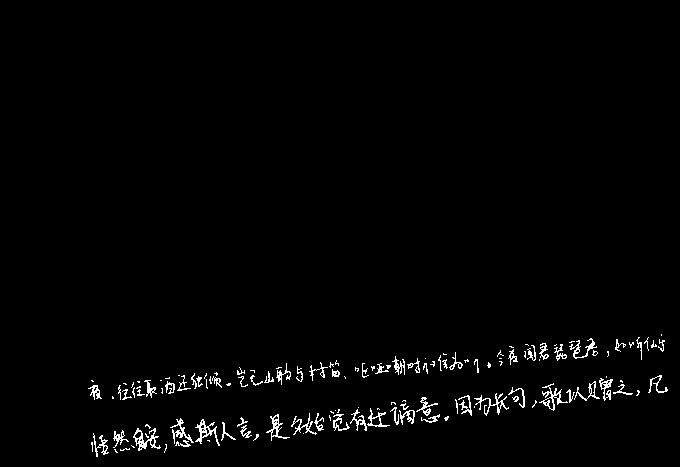 夜,往往取酒还独倾。岂无山歌与村笛、呕哑嘲为听。今夜闻君琵琶语,如听仙乐
恬然自安,感斯人言,是夕始觉有迁谪意。因为长句,歌以赠之,凡